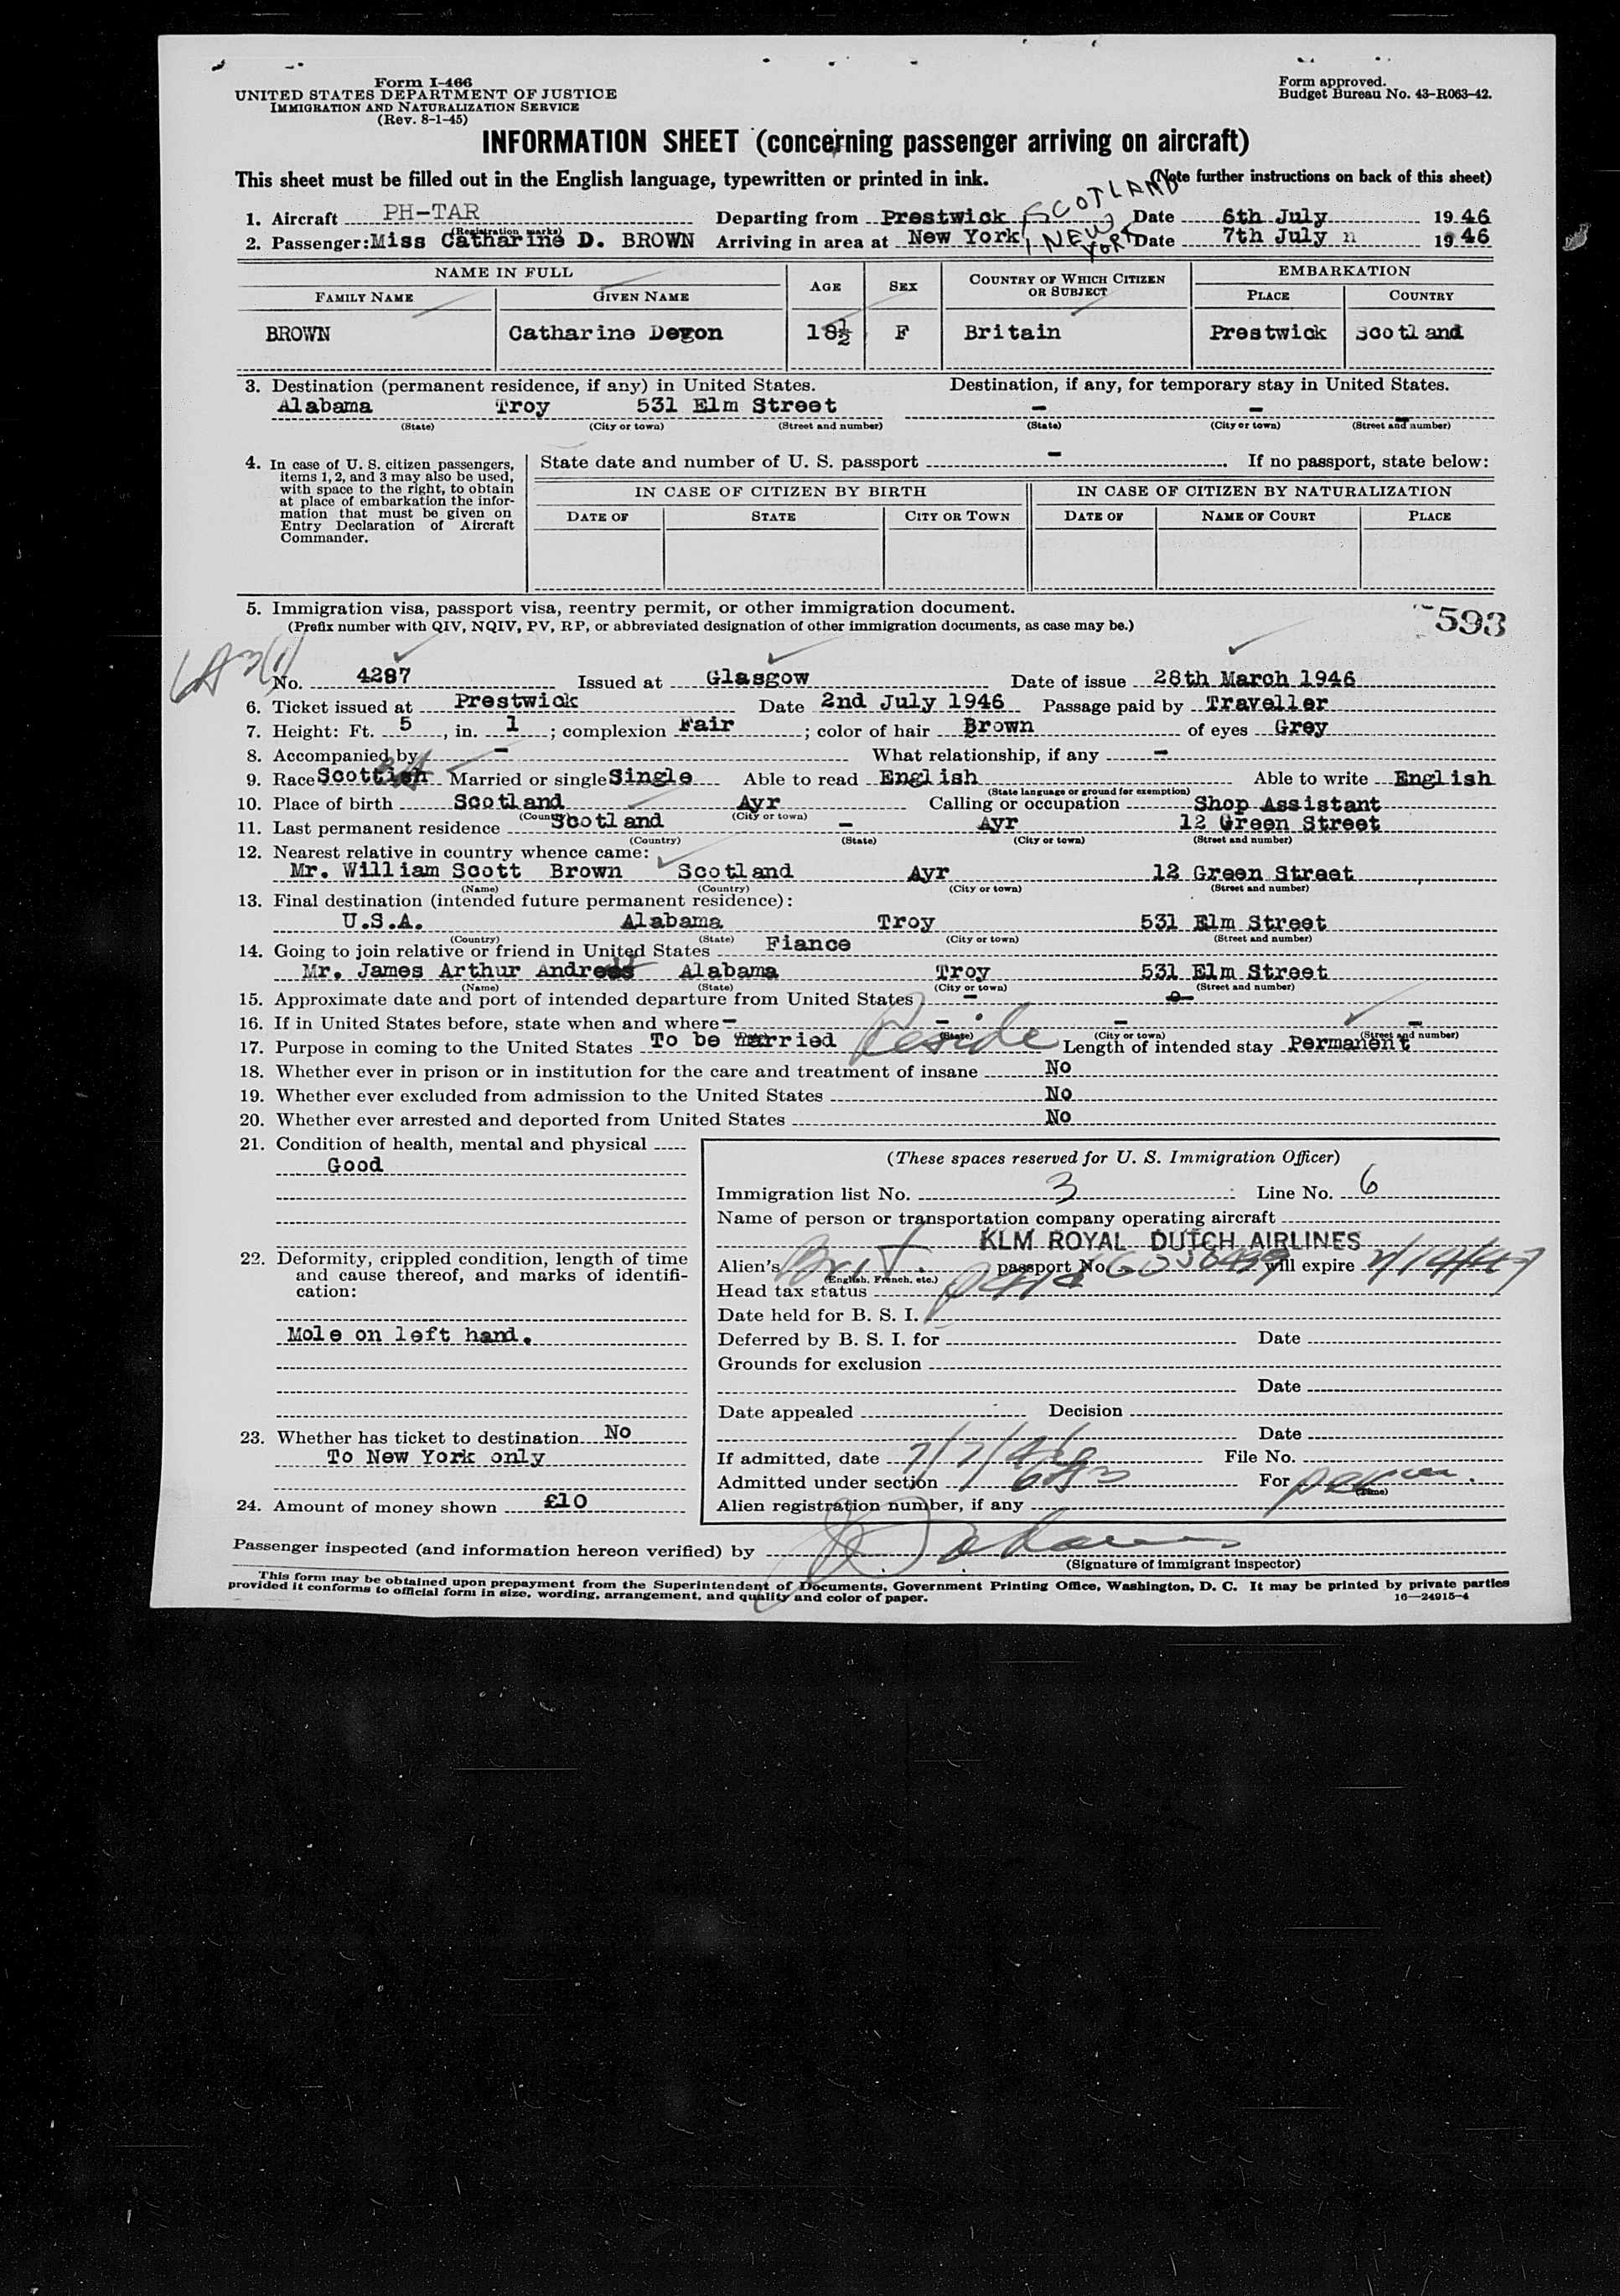 Form I-466
UNITED STATES DEPARTMENT OF JUSTICE
IMMIGRATION AND NATURALIZATION SERVICE
(Rev. 8-1-45)
Form approved.
Budget Bureau No. 43-R063-42.
INFORMATION SHEET (concerning passenger arriving on aircraft)
This sheet must be filled out in the English language, typewritten or printed in ink. (Note further instructions on back of this sheet)
1. Aircraft PH-TAR (Registration marks) Departing from Prestwick, SCOTLAND Date 6th July 1946
2. Passenger: Miss Catharine D. BROWN Arriving in area at New York, NEW YORK Date 7th July 1946
NAME IN FULL AGE SEX COUNTRY OF WHICH CITIZEN OR SUBJECT EMBARKATION
FAMILY NAME GIVEN NAME PLACE COUNTRY
BROWN Catharine Devon 18½ F Britain Prestwick Scotland
3. Destination (permanent residence, if any) in United States. Destination, if any, for temporary stay in United States.
Alabama Troy 531 Elm Street - - -
(State) (City or town) (Street and number) (State) (City or town) (Street and number)
4. In case of U. S. citizen passengers, items 1, 2, and 3 may also be used, with space to the right, to obtain at place of embarkation the information that must be given on Entry Declaration of Aircraft Commander.
State date and number of U. S. passport - If no passport, state below:
IN CASE OF CITIZEN BY BIRTH IN CASE OF CITIZEN BY NATURALIZATION
DATE OF STATE CITY OR TOWN DATE OF NAME OF COURT PLACE
5. Immigration visa, passport visa, reentry permit, or other immigration document.
(Prefix number with QIV, NQIV, PV, RP, or abbreviated designation of other immigration documents, as case may be.)
593
No. 4287 Issued at Glasgow Date of issue 28th March 1946
6. Ticket issued at Prestwick Date 2nd July 1946 Passage paid by Traveller
7. Height: Ft. 5, in. 1; complexion Fair; color of hair Brown of eyes Grey
8. Accompanied by - What relationship, if any -
9. Race Scottish Married or single Single Able to read English Able to write English
(State language or ground for exemption)
10. Place of birth Scotland Ayr Calling or occupation Shop Assistant
(Country) (City or town)
11. Last permanent residence Scotland - Ayr 12 Green Street
(Country) (State) (City or town) (Street and number)
12. Nearest relative in country whence came:
Mr. William Scott Brown Scotland Ayr 12 Green Street
(Name) (Country) (City or town) (Street and number)
13. Final destination (intended future permanent residence):
U.S.A. Alabama Troy 531 Elm Street
(Country) (State) (City or town) (Street and number)
14. Going to join relative or friend in United States Fiance
Mr. James Arthur Alabama Troy 531 Elm Street
(Name) (State) (City or town) (Street and number)
15. Approximate date and port of intended departure from United States -
16. If in United States before, state when and where - - - -
(Date) (State) (City or town) (Street and number)
17. Purpose in coming to the United States To be married Reside Length of intended stay Permanent
18. Whether ever in prison or in institution for the care and treatment of insane No
19. Whether ever excluded from admission to the United States No
20. Whether ever arrested and deported from United States No
21. Condition of health, mental and physical
Good
22. Deformity, crippled condition, length of time and cause thereof, and marks of identification:
Mole on left hand.
23. Whether has ticket to destination No
To New York only
24. Amount of money shown £10
(These spaces reserved for U. S. Immigration Officer)
Immigration list No. 3 Line No. 6
Name of person or transportation company operating aircraft
KLM ROYAL DUTCH AIRLINES
Alien's Brit. passport No. will expire
(English, French, etc.)
Head tax status paid
Date held for B. S. I.
Deferred by B. S. I. for Date
Grounds for exclusion
Date
Date appealed Decision
Date
If admitted, date 7/7/46 File No.
Admitted under section 6A3 For
(Time)
Alien registration number, if any
Passenger inspected (and information hereon verified) by
(Signature of immigrant inspector)
This form may be obtained upon prepayment from the Superintendent of Documents, Government Printing Office, Washington, D. C. It may be printed by private parties
provided it conforms to official form in size, wording, arrangement, and quality and color of paper.
16—24915-4